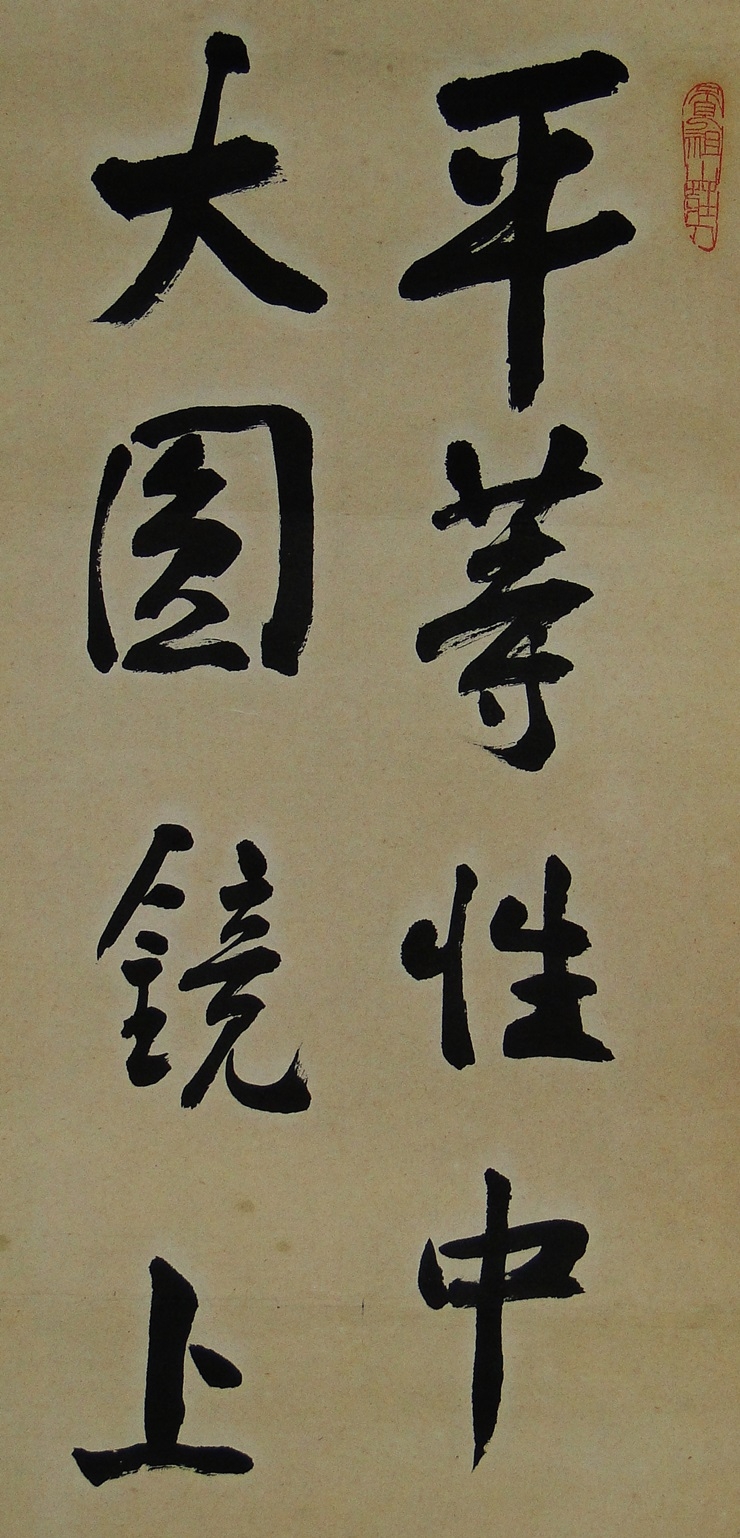 平等性中
大圓鏡上